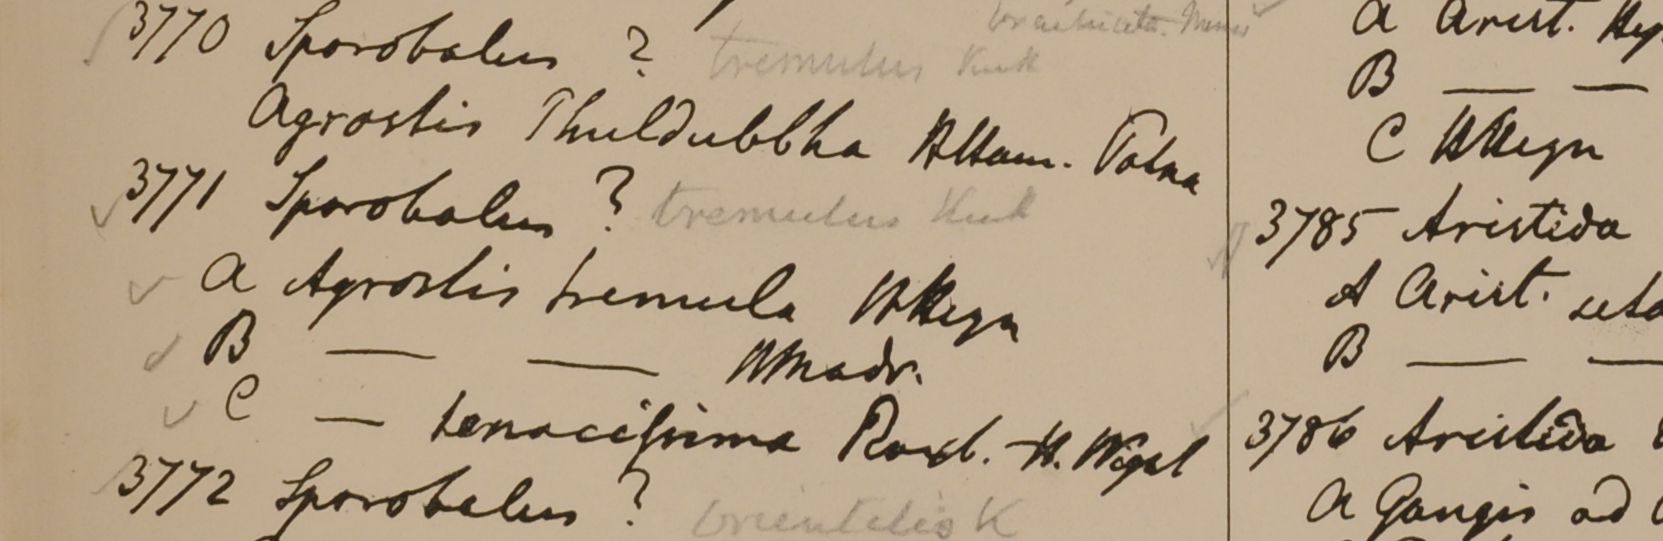 3770 Sporobolus ? tremulus Knth
Agrostis Thuldubbha HHam. Patna
3771 Sporobolus ? tremulus Knth
a Agrostis tremula HHeyn
B — — HMadr.
C — tenacissima Roxb. H. Wight
3772 Sporobolus ? orientalis K
a Arist. Hey
B — —
C HHeyn
3785 Aristida
A Arist. seta
B — —
3786 Aristida
a Gangis ad